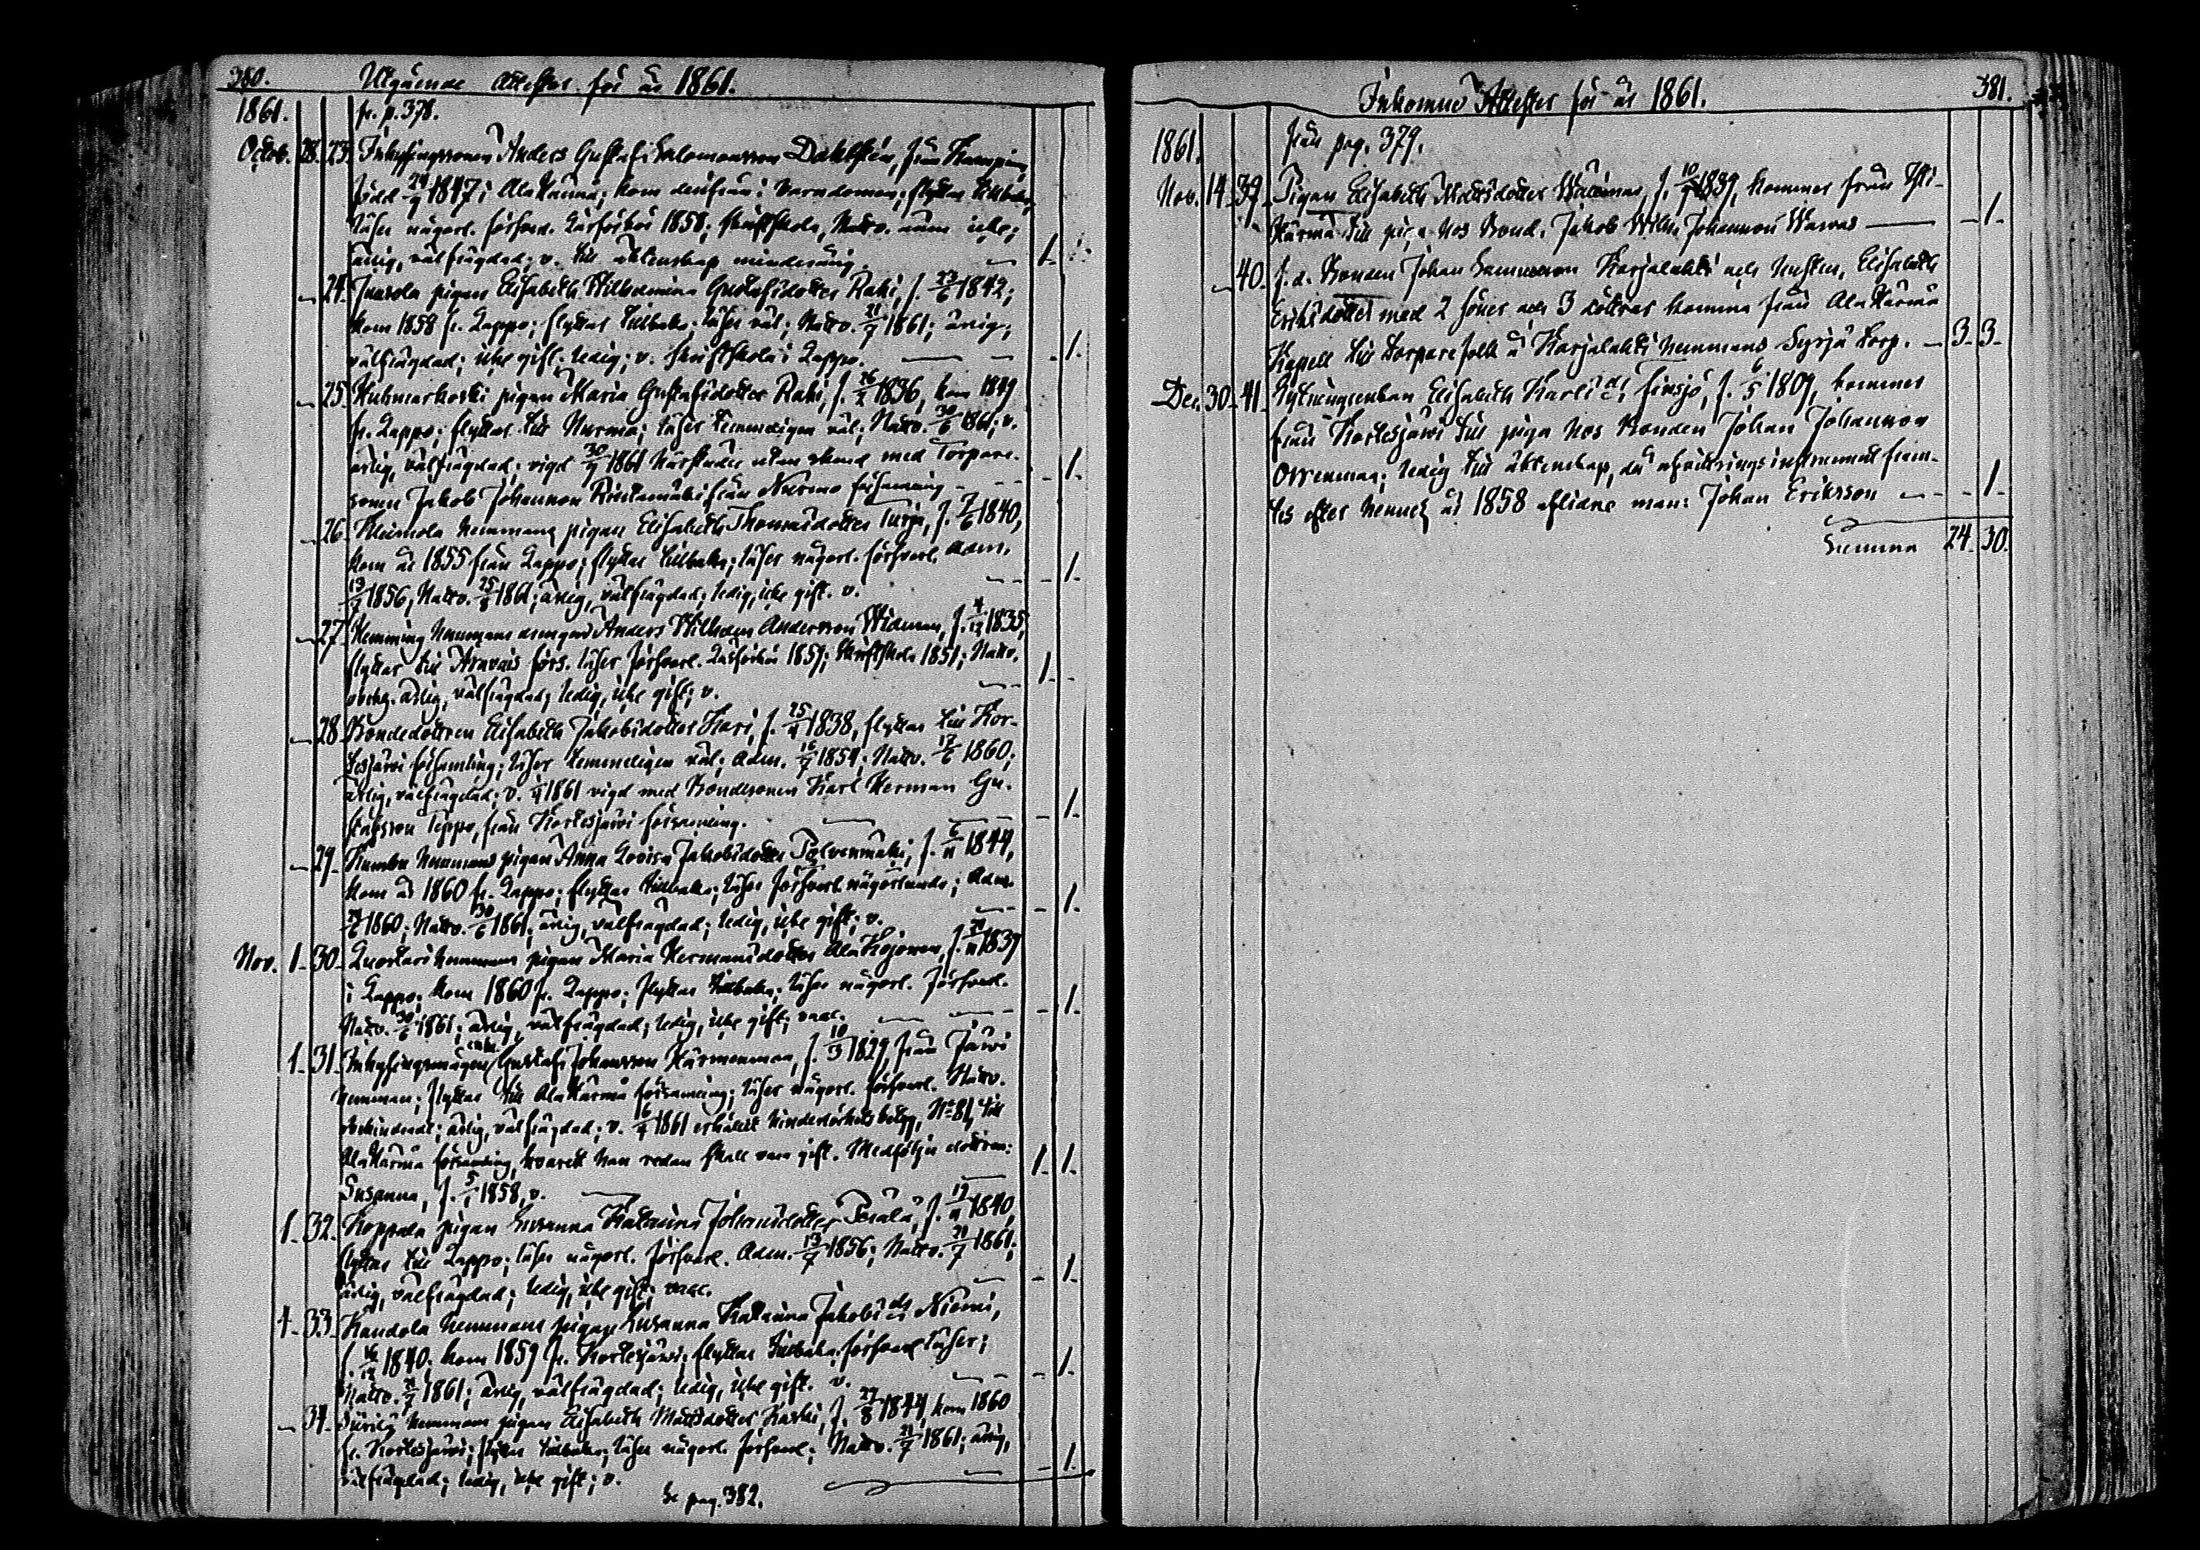 380. Utgående Attester för år 1861.
1861. fr. p. 378.
Octob. 28. 23. Inhysingssonen Anders Gustaf Salomonsson Dahlsten, från
född 24/9 1847 i Alahärmä; kom derifrån i barndomen; flyttar tillbaka;
läser någorl. försvarl. Läsförhör 1858; skriftskola, Nattv. ännu icke;
ärlig, välfrägdad; v. till äktenskap minderårig. 1.
24. pigan Elisabeth Wilhelmina Gustafsdotter Rahi, f. 23/6 1842;
kom 1858 fr. Lappo; flyttar tillbaka; läser väl; Nattv. 21/7 1861; ärlig;
välfrägdad; icke gift, ledig; v. skriftskola i Lappo. 1.
25. pigan Maria Gustafsdotter Rahi, f. 1836, kom 1849
fr. Lappo; flyttar till Nurmo; läser temmeligen väl; Nattv. 30/6 1861; v.
ärlig, välfrägdad; vigd 30/9 1861 härstädes utan med Torpare-
sonen Jakob Johansson Rintamäki från Nurmo församling 1.
26. hemmans pigan Elisabeth Thomasdotter Turja, f. 7/6 1840,
kom år 1855 från Lappo; flyttar tillbaka; läser någorl. försvarl. Adm.
13/7 1856, Nattv. 25/8 1861; ärlig, välfrägdad; ledig, icke gift. v. 1.
27. Hemming hemmans drängen Anders Wilhelm Andersson Widman, f. 4/12 1835,
flyttar till förs. läser försvarl. Läsförhör 1859; Skriftskola 1851; Nattv.
ärlig, välfrägdad; ledig, icke gift; v. 1.
28. Bondedottren Elisabeth Jakobsdotter Hari, f. 25/4 1838, flyttar till Kor-
tesjärvi församling; läser temmeligen väl; Adm. 16/7 1854; Nattv. 17/6 1860;
ärlig, välfrägdad; v. 1861 vigd med Bondesonen Karl Herman Gu-
stafsson Teppo, från Kortesjärvi församling. 1.
29. hemmans pigan Anna Lovisa Jakobsdotter f. 6/11 1844,
kom år 1860 fr. Lappo; flyttar tillbaka; läser försvarl. någorlunda; Adm.
1860; Nattv. 30/6 1861; ärlig, välfrägdad; ledig, icke gift; v. 1.
Nov. 1. 30. hemmans pigan Maria Hermansdotter Ala Kojonen, f. 1839
i Lappo; kom 1860 fr. Lappo; flyttar tillbaka; läser någorl. försvarl.
Nattv. 30/6 1861; ärlig, välfrägdad; ledig, icke gift; vacc. 1.
1. 31. Inhysingsmågen enkl. Gustaf Johansson Härmänmaa, f. 10/3 1829, från Järvi
hemman; flyttar till Alahärmä församling; läser någorl. försvarl. Nattv.
obehindrad; ärlig, välfrägdad; v. 1861 erhållit hinderlöshets betyg, No 81, till
Alahärmä församling, hvarest han redan skall vara gift. Medföljer dottren:
Susanna, f. 5/1 1858, v. 1. 1.
1. 32. Koppala pigan Susanna Katarina Johansdotter f. 1840,
flyttar till Lappo; läser någorl. försvarl. Adm. 13/7 1856; Nattv. 21/7 1861;
ärlig, välfrägdad; ledig, icke gift; vacc. 1.
1. 33. Kandola hemmans pigan Susanna Katarina Jakobsdr Niemi,
f. 1840; kom 1859 fr. Kortesjärvi; flyttar tillbaka; försvarl. läser;
Nattv. 21/7 1861; ärlig, välfrägdad; ledig, icke gift. v. 1.
34. hemmans pigan Elisabeth Mattsdotter f. 27/8 1844, kom 1860
fr. Kortesjärvi; flyttar tillbaka; läser någorl. försvarl.; Nattv. 21/7 1861; ärlig,
välfrägdad; ledig, icke gift; v. 1.
Se pag. 382.
Inkomne Attester för år 1861. 381.
1861. från pag. 379.
Nov. 14. 39. Pigan Elisabeth Mattsdotter f. 10/7 1839, kommer från Yli-
härmä till piga hos Bond. Jakob Wilh. Johansson 1.
40. f. d. Bonden Johan Karjalahti och hustrun, Elisabeth
Eriksdotter med 2 söner och 3 döttrar komma från Alahärmä
Kapell till torparefolk å Karjalahti hemmans Syrjä torp. 3. 3.
Dec. 30. 41. Sytningsenkan Elisabeth Karlsdr Finsjö, f. 6/5 1809, kommer
från Kortesjärvi till piga hos Bonden Johan Johansson
ledig till äktenskap, då afvittringsinstrument fram-
tes efter hennes år 1858 aflidne man: Johan Eriksson 1.
Summa 24. 30.